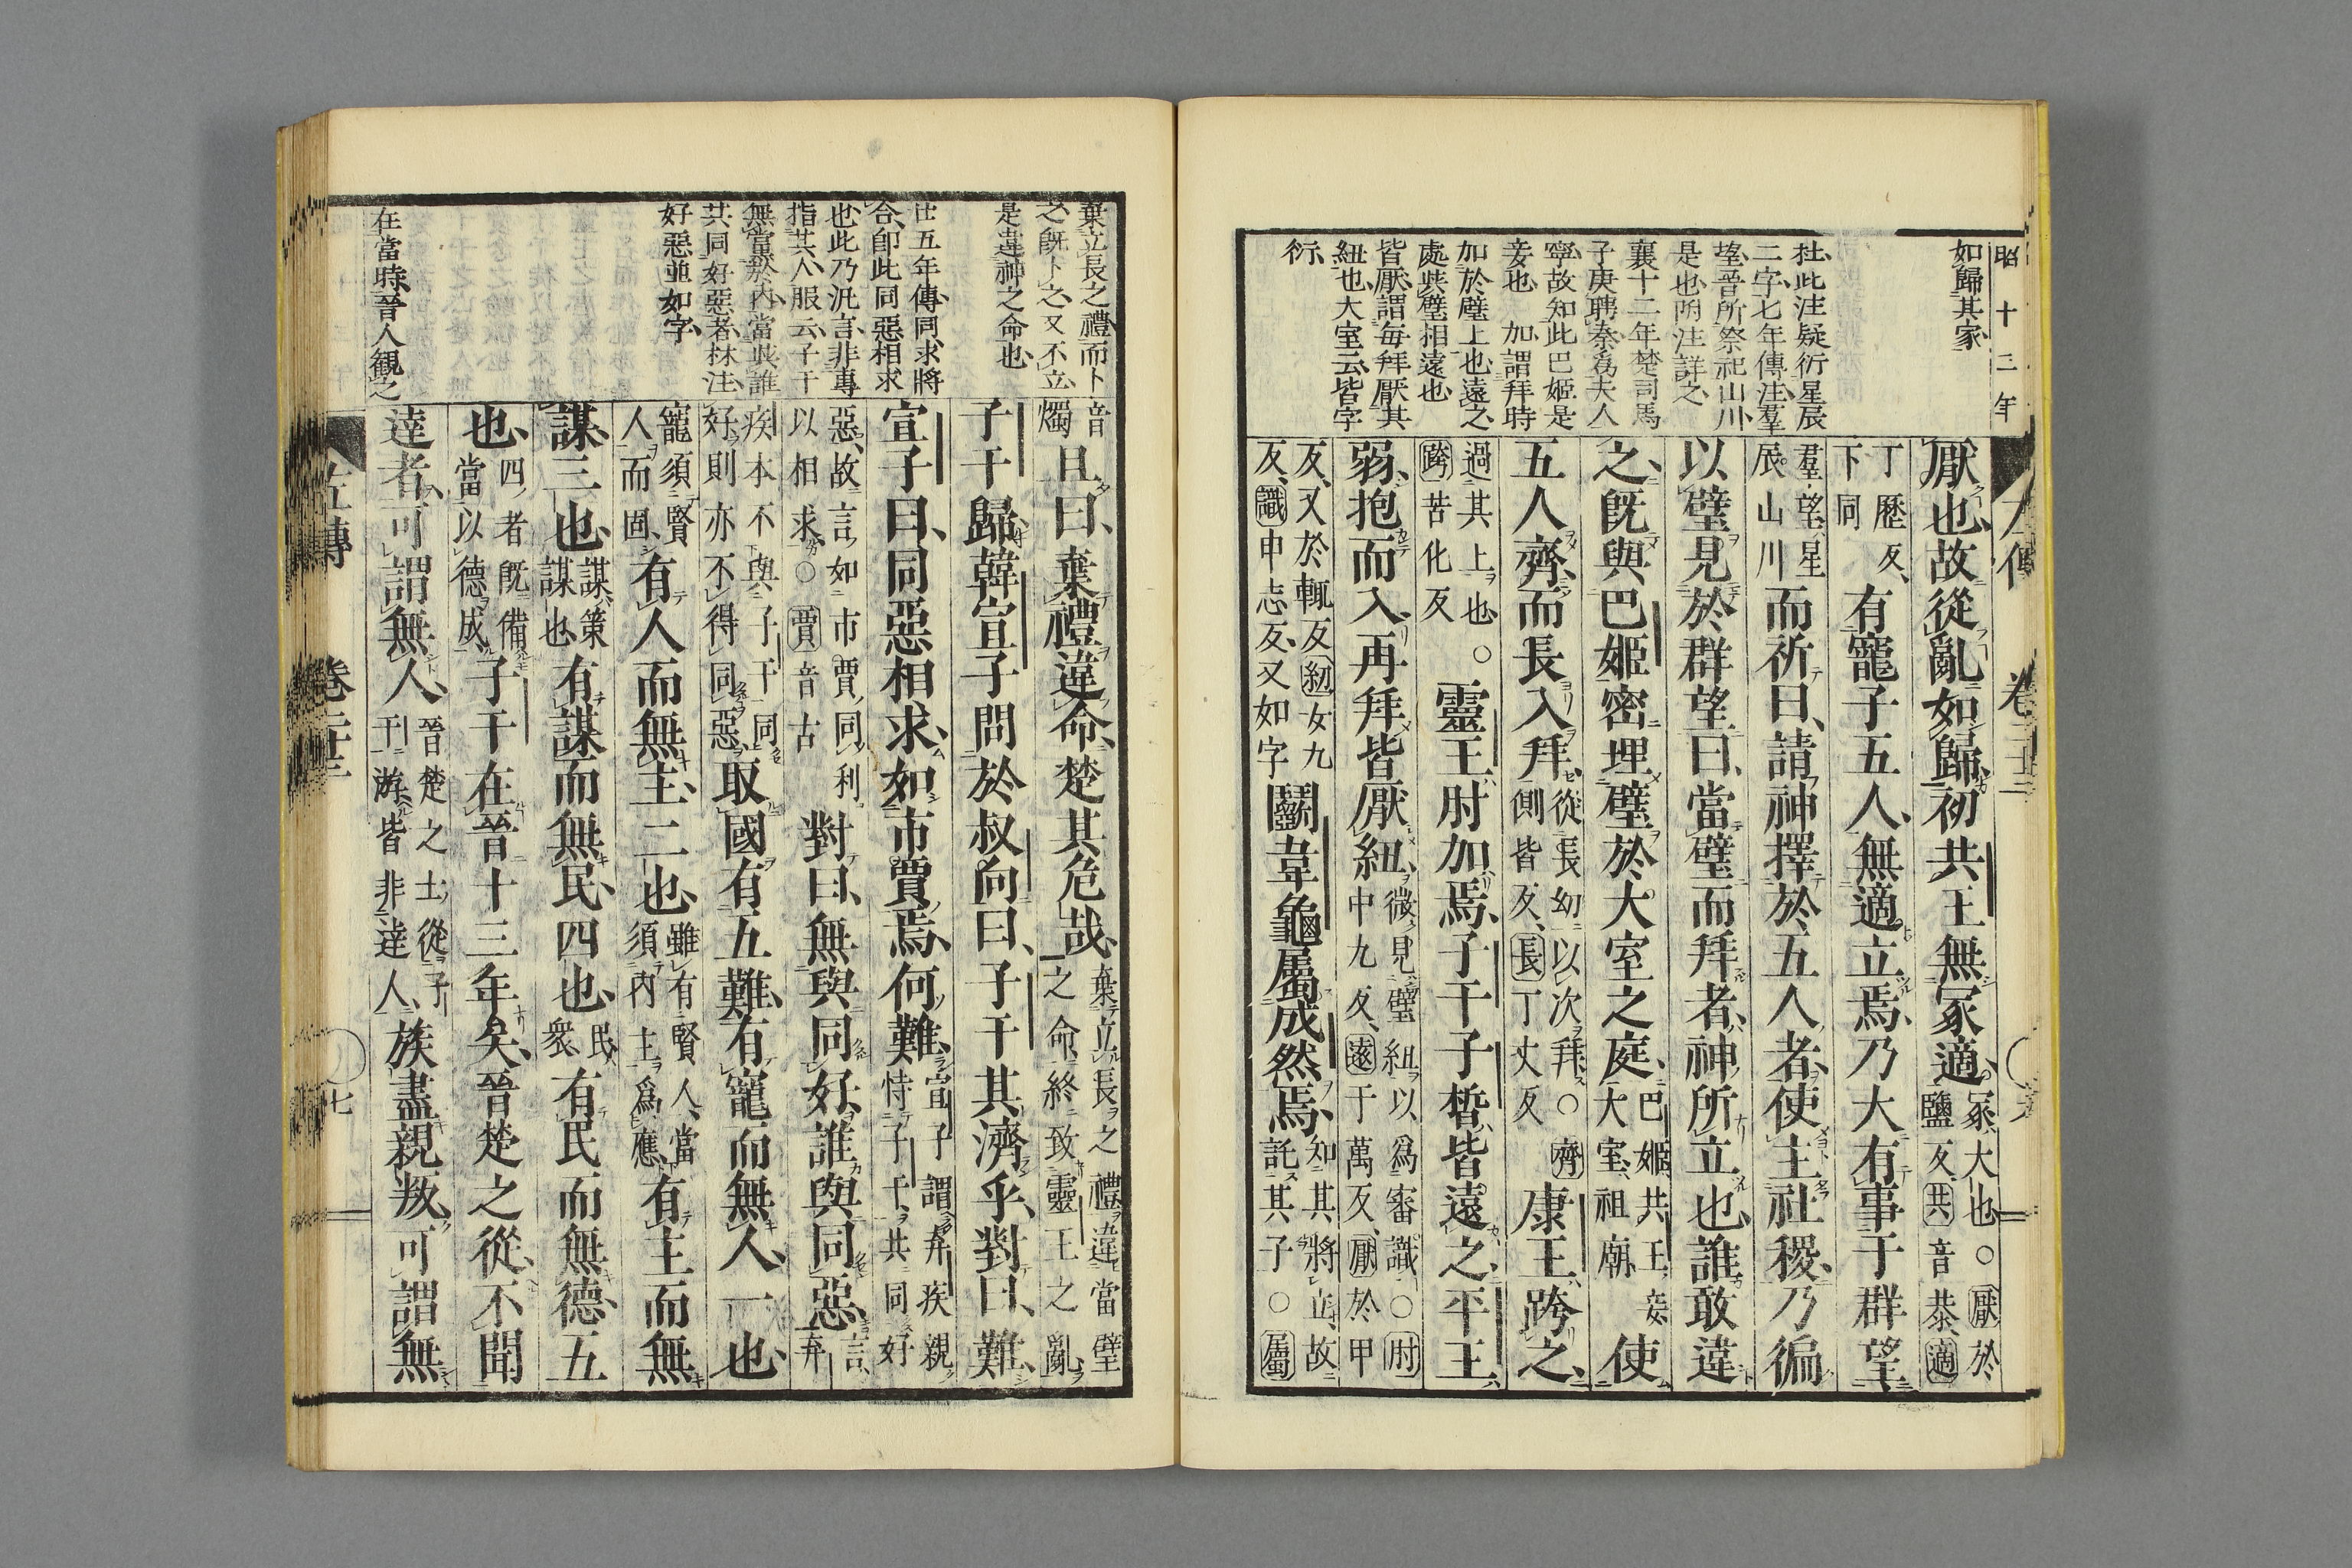 昭十三年
左傳 卷二十三
如歸其家
杜此注疑衍星辰
二字七年傳注羣
望晉所祭祀山川
是也附注詳之
襄十二年楚司馬
子庚聘秦爲夫人
寧故知此巴姬是
妾也 加謂拜時
加於璧上也遠之
處與璧相遠也
皆厭謂每拜厭其
紐也大室云皆字
衍
厭也、故從亂如歸、初共王無冢適、冢大也○厭於鹽反、共音恭、適
丁歷反、下同有寵子五人、無適立焉、乃大有事于群望、
羣望、星辰山川而祈曰、請神擇於五人者、使主社稷、乃徧
以璧見於群望曰、當璧而拜者、神所立也、誰敢違
之、既與巴姬密埋璧於大室之庭、巴姬、共王妾、大室、祖廟、使
五人齊、而長入拜、從長幼以次拜○齊側皆反、長丁丈反康王跨之、
過其上也○跨苦化反靈王肘加焉、子干子皙皆遠之、平王
弱、抱而入、再拜皆厭紐、微見璧紐以爲審識○肘中九反、遠于萬反、厭於甲
反、又於輒反紐女九反、識申志反、又如字鬭韋龜屬成然焉、知其將立、故託其子○屬
音燭
棄立長之禮而卜
之既卜之又不立
是違神之命也
廿五年傳同求將
合即此同惡相求
也此乃汎言非專
指其人服云子干
無當於內當與誰
共同好惡者林注
好惡並如字
在當時晉人観之
且曰、棄禮違命、楚其危哉、棄立長之禮、違當璧之命、終致靈王之亂
子干歸、韓宣子問於叔向曰、子干其濟乎、對曰、難、
宣子曰、同惡相求、如市賈焉、何難、宣子謂弃疾親恃子干共同好
惡、故言如市賈同利以相求○賈音古對曰、無與同好、誰與同惡、言弃
疾本不與子干同好、則亦不得同惡取國有五難、有寵而無人、一也、
寵須賢人而固有人而無主、二也、雖有賢人、當須內主爲應有主而無
謀、三也、謀策謀也有謀而無民、四也、民衆有民而無德、五
也、四者既備當以德成子干在晉十三年矣、晉楚之從、不聞
達者、可謂無人、晉楚之士從子干游皆非達人、族盡親叛、可謂無
左傳 卷二十三 七